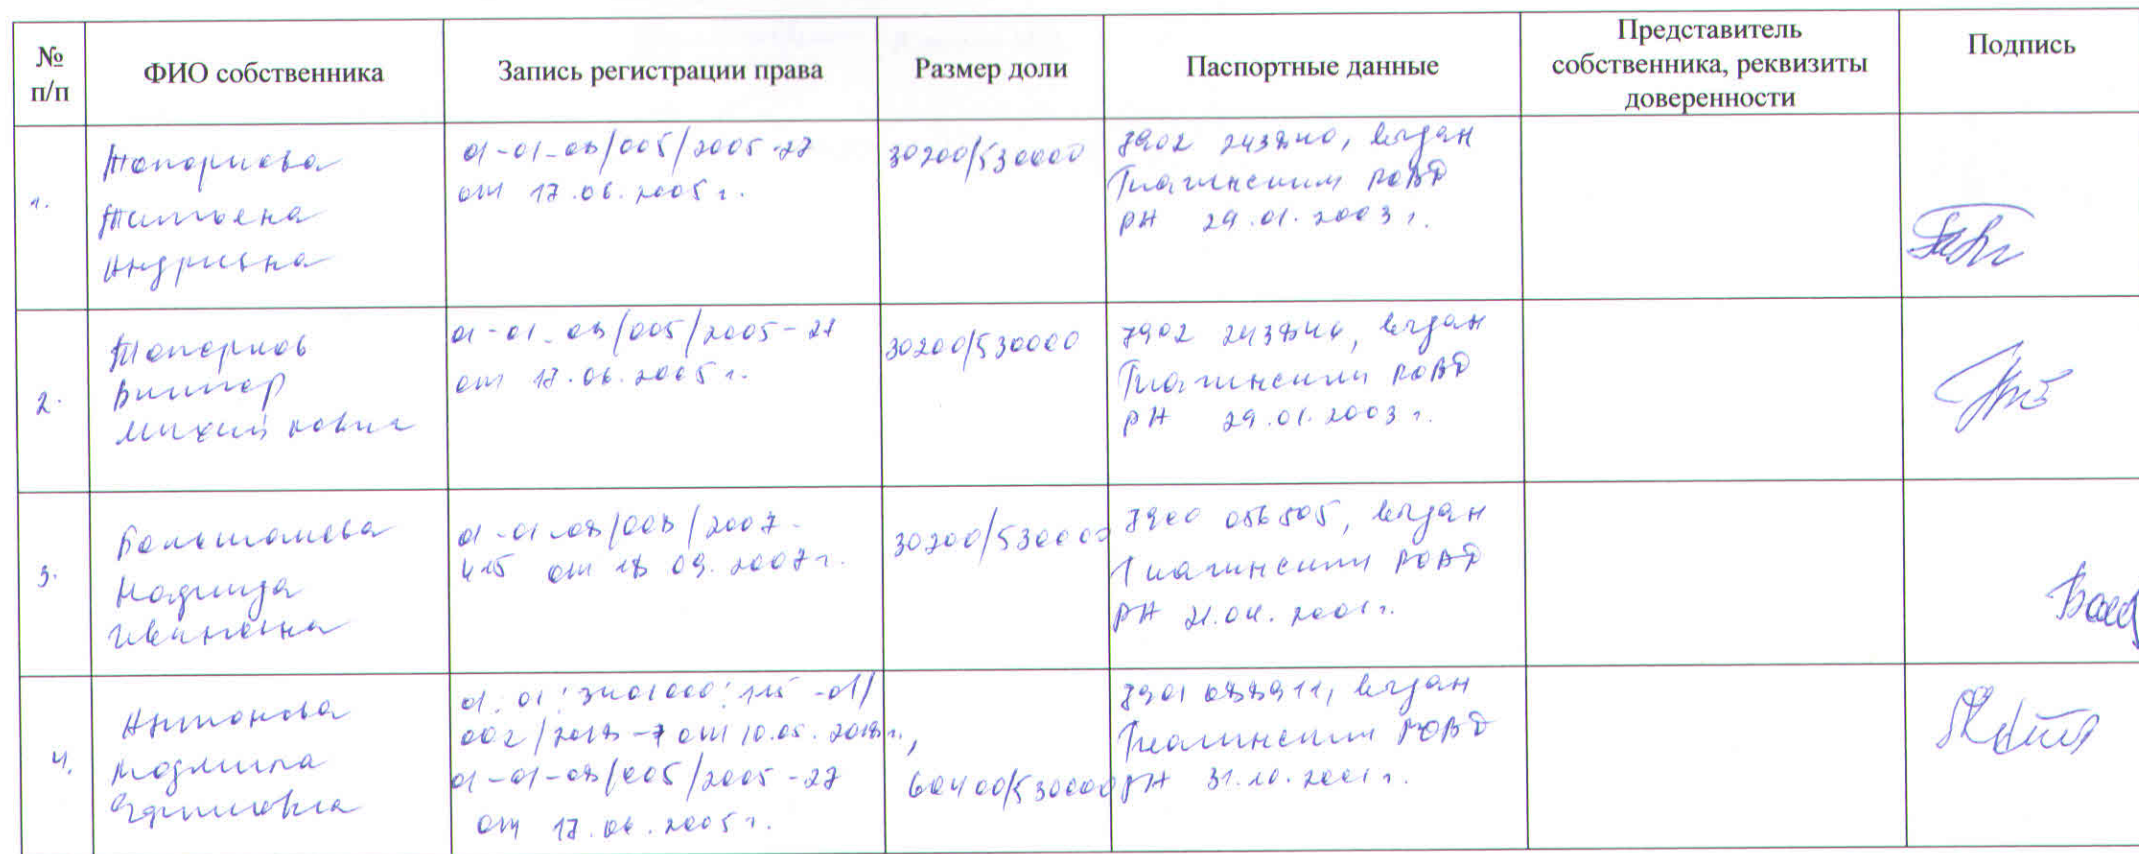 № п/п
ФИО собственника
Запись регистрации права
Размер доли
Паспортные данные
Представитель собственника, реквизиты доверенности
Подпись
1.
Топоркова
Татьяна
Андреевна
01-01-08/005/2005-27
от 17.06.2005 г.
30200/530000
7902 243840, выдан
Гиагинским РОВД
РА 29.01.2003 г.
2.
Топорков
Виктор
Михайлович
01-01-08/005/2005-27
от 17.06.2005 г.
30200/530000
7902 выдан
Гиагинским РОВД
РА 29.01.2003 г.
3.
Надежда
Ивановна
01-01-08/008/2007-
415 от 18.09.2007 г.
30200/530000
7900 056505, выдан
Гиагинским РОВД
РА 21.04.2001 г.
4.
Антонова
Людмила
01:01:3401000:115-01/
002/2018-7 от 10.05.2018 г.,
01-01-08/005/2005-27
от 17.06.2005 г.
60400/530000
7901 088911, выдан
Гиагинским РОВД
РА 31.10.2001 г.